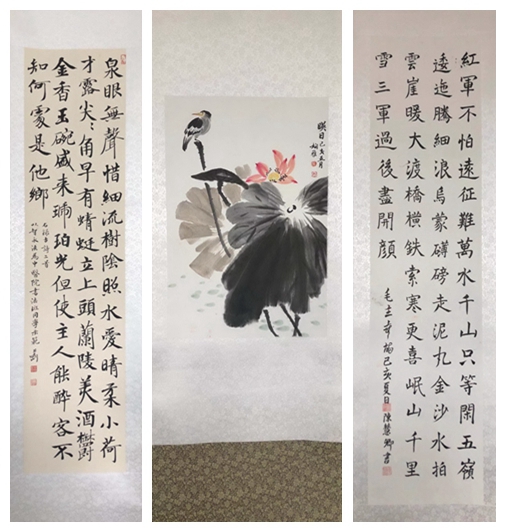 泉眼無聲惜細流樹陰照水愛晴柔小荷
才露尖〻角早有蜻蜓立上頭蘭陵美酒鬱
金香玉碗盛来琥珀光但使主人能醉客不
知何處是他鄉
詩二首
以智永法為中醫院書法班同學示範
映日己亥夏月
紅軍不怕遠征難萬水千山只等閑五嶺
逶迤騰細浪烏蒙礴磅走泥丸金沙水拍
雲崖暖大渡橋橫鐵索寒更喜岷山千里
雪三軍過後盡開顏
毛主席詞己亥夏日陳慧卿書